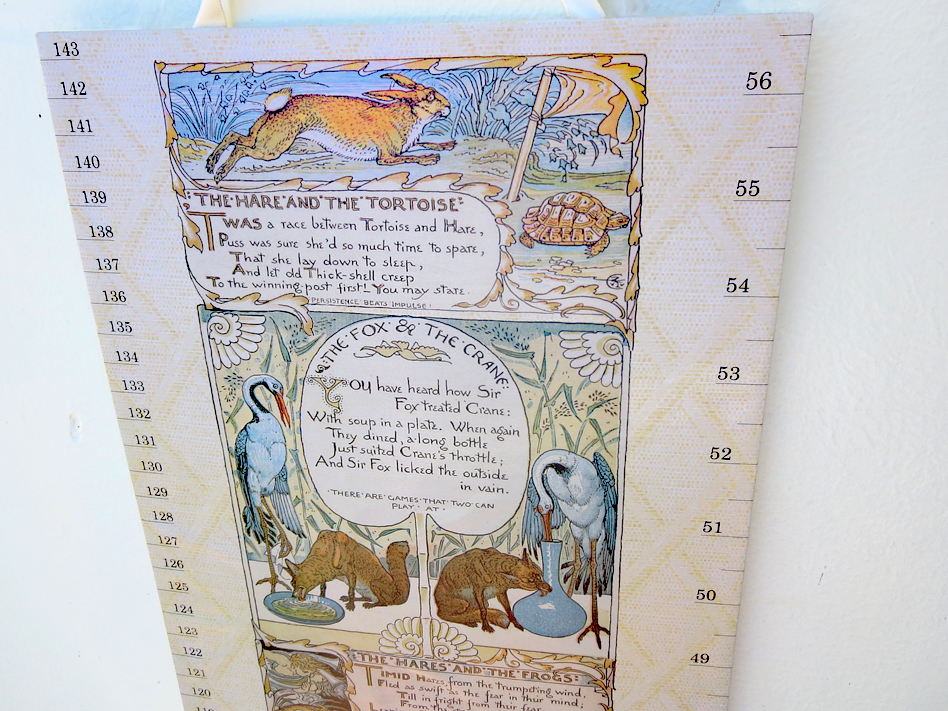 143
142
141
140
139
138
137
136
135
134
133
132
131
130
129
128
127
126
125
124
123
122
121
120
56
55
54
53
52
51
50
49
THE HARE AND THE TORTOISE:
TWAS a race between Tortoise and Hare,
Puss was sure she'd so much time to spare,
That she lay down to sleep,
And let old Thick-shell creep
To the winning post first!—You may stare.
PERSISTENCE BEATS IMPULSE!
THE FOX & THE CRANE:
You have heard how Sir
Fox treated Crane:
With soup in a plate. When again
They dined, a long bottle
Just suited Crane's throttle;
And Sir Fox licked the outside
in vain.
THERE ARE GAMES THAT TWO CAN
PLAY AT
THE HARES AND THE FROGS:
TIMID Hares, from the trumpeting wind,
Fled as swift as the fear in their mind;
Till in fright from their fear,
From the